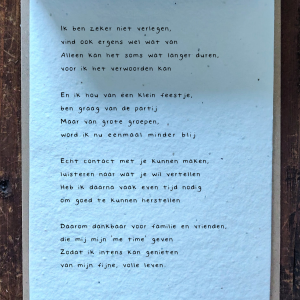 Ik ben zeker niet verlegen,
vind ook ergens wel wat van
Alleen kan het soms wat langer duren,
voor ik het verwoorden kan
En ik hou van een klein feestje,
ben graag van de partij
Maar van grote groepen,
word ik nu eenmaal minder blij
Echt contact met je kunnen maken,
luisteren naar wat je wil vertellen
Heb ik daarna vaak even tijd nodig
om goed te kunnen herstellen
Daarom dankbaar voor familie en vrienden,
die mij mijn me time geven
Zodat ik intens kan genieten
van mijn fijne, volle leven.